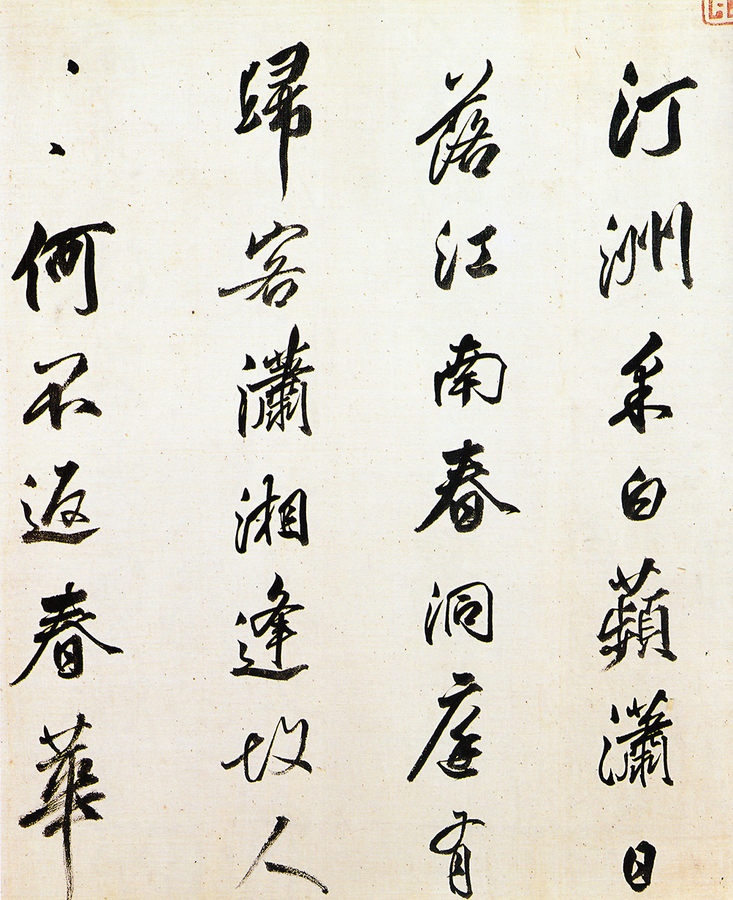 汀洲采白蘋瀟日
落江南春洞庭有
歸客瀟湘逢故人
、、何不返春華